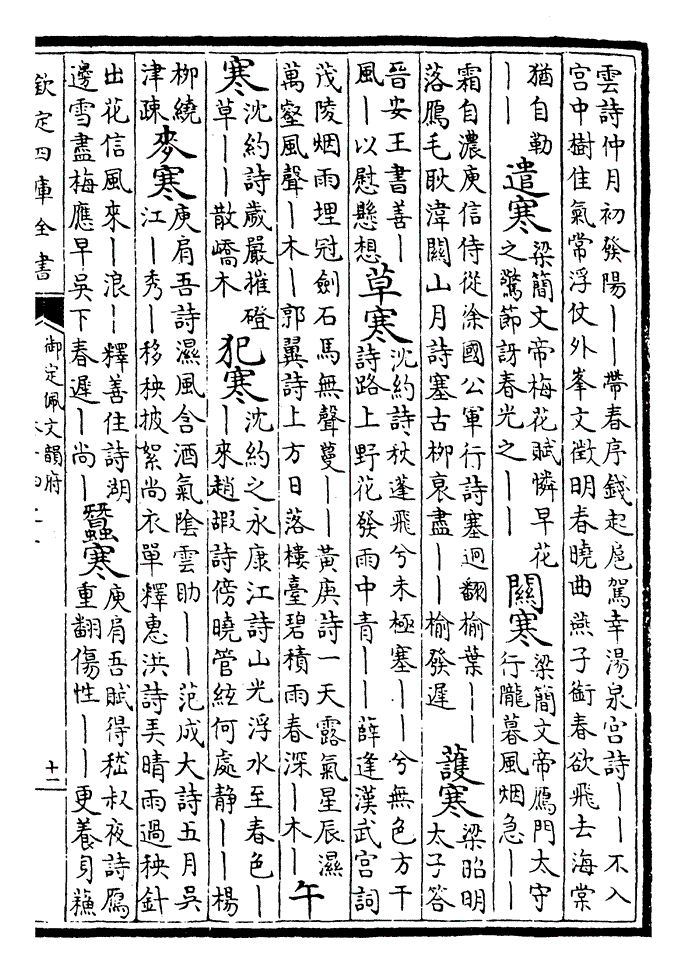 雲詩仲月初發陽——帶春序錢起扈駕幸湯泉宮詩——不入
宮中樹佳氣常浮仗外峯文徵明春曉曲燕子銜春欲飛去海棠
猶自勒
——
遣寒
梁簡文帝梅花賦憐早花
之驚節訝春光之——
關寒
梁簡文帝鴈門太守
行隴暮風烟急——
霜自濃庾信侍從涂國公軍行詩塞迥翻榆葉——
落鴈毛耿湋關山月詩塞古柳衰盡——榆發遲
護寒
梁昭明
太子答
晉安王書善—
風—以慰懸想
草寒
沈約詩秋蓬飛兮未極塞——兮無色方干
詩路上野花發雨中青——薛逢漢武宮詞
茂陵烟雨埋冠劍石馬無聲蔓——黄庚詩一天露氣星辰濕
萬壑風聲—木—郭翼詩上方日落樓臺碧積雨春深—木—
午
寒
沈約詩歲嚴摧磴
草——散嶠木
犯寒
沈約之永康江詩山光浮水至春色—
—來趙嘏詩傍曉管絃何處静——楊
柳繞
津疎
麥寒
庾肩吾詩濕風含酒氣陰雲助——范成大詩五月吳
江—秀—移秧披絮尚衣單釋惠洪詩美晴雨過秧針
出花信風來—浪—釋善住詩湖
邊雪盡梅應早吳下春遲—尚—
蠶寒
庾肩吾賦得嵇叔夜詩鴈
重翻傷性——更養身蘓
欽定四庫全書
御定佩文韻府
十二